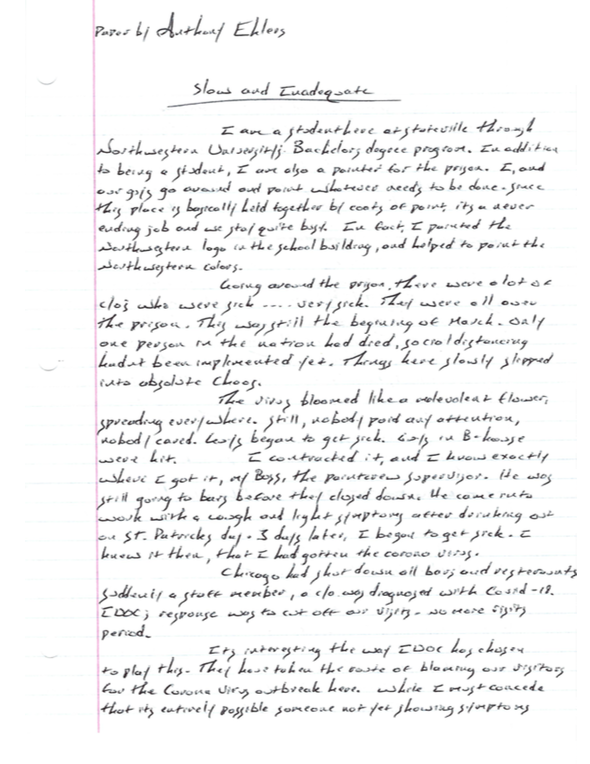 Paper by Anthony Ehlers
Slow and Inadequate
I am a student here at stateville through
Northwestern University's Bachelors degree program. In addition
to being a student, I am also a painter for the prison. I, and
our guys go around and paint whatever needs to be done - since
this place is basically held together by coats of paint, its a never
ending job and we stay quite busy. In fact, I painted the
Northwestern logo in the school building, and helped to paint the
Northwestern colors.
Going around the prison, there were a lot of
who were sick .... very sick. They were all over
the prison. This was still the begining of March. Only
one person in the nation had died, social distancing
hadnt been implemented yet. Things here slowly slipped
into absolute chaos.
The virus bloomed like a malevolent flower,
spreading everywhere. Still, nobody paid any attention,
nobody cared. Guys began to get sick. Guys in B-house
were hit. I contracted it, and I know exactly
where I got it, my Boss, the paintcrew supervisor. He was
still going to bars before they closed down. He came into
work with a cough and light symptoms after drinking out
on St. Patricks day - 3 days later, I began to get sick. I
knew it then, that I had gotten the corona virus.
Chicago had shut down all bars and resterants
suddenly a staff member, a c/o was diagnosed with Covid-19.
IDOC's response was to cut off our visits - no more visits
period.
Its interesting the way IDOC has chosen
to play this. They have taken the route of blaming our visitors
for the Corona virus outbreak here. While I must concede
that its entirely possible someone not yet showing symptoms